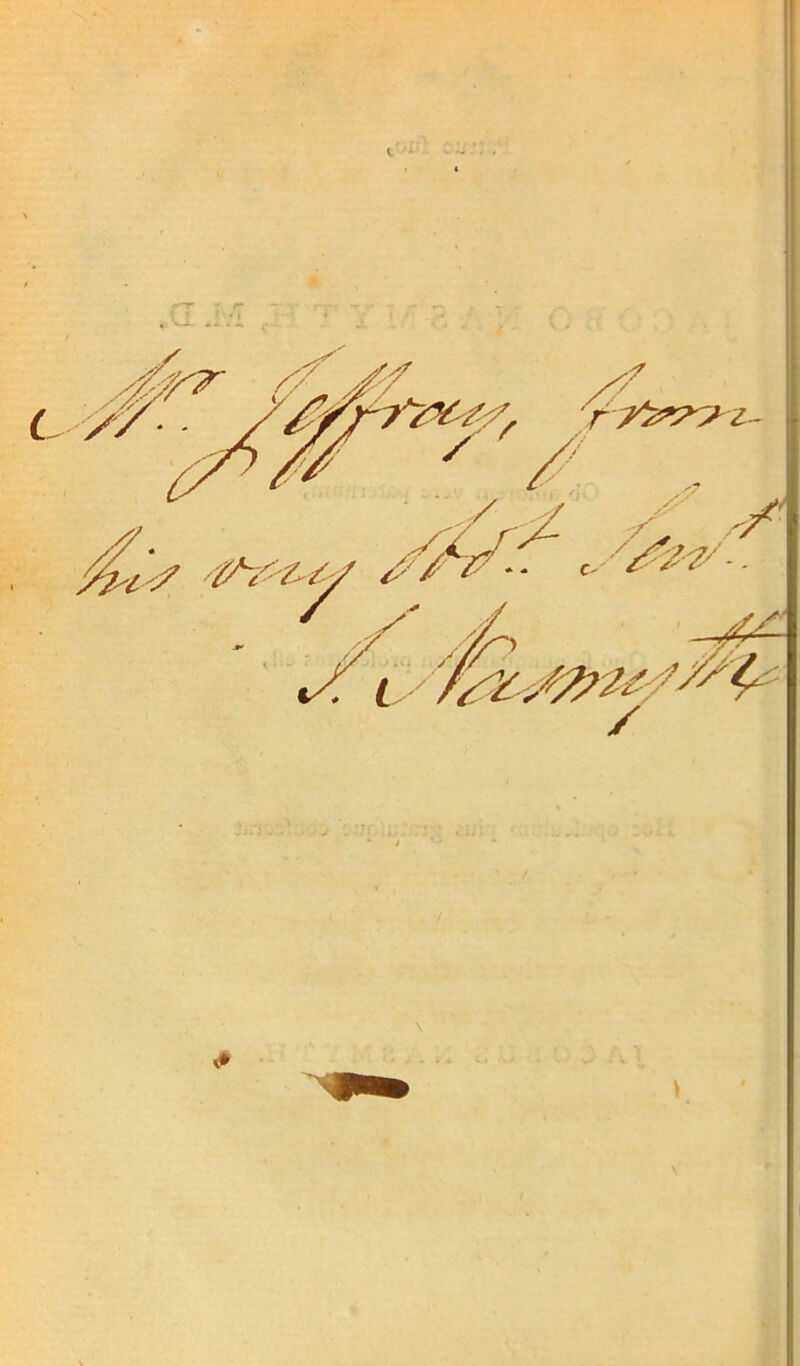 Mr. Jeffray, from
his very obdt. Servt.
J. Nasmyth